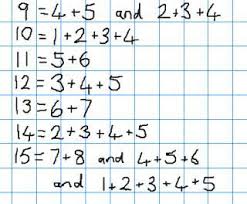 9 = 4 + 5 and 2 + 3 + 4
10 = 1 + 2 + 3 + 4
11 = 5 + 6
12 = 3 + 4 + 5
13 = 6 + 7
14 = 2 + 3 + 4 + 5
15 = 7 + 8 and 4 + 5 + 6
and 1 + 2 + 3 + 4 + 5